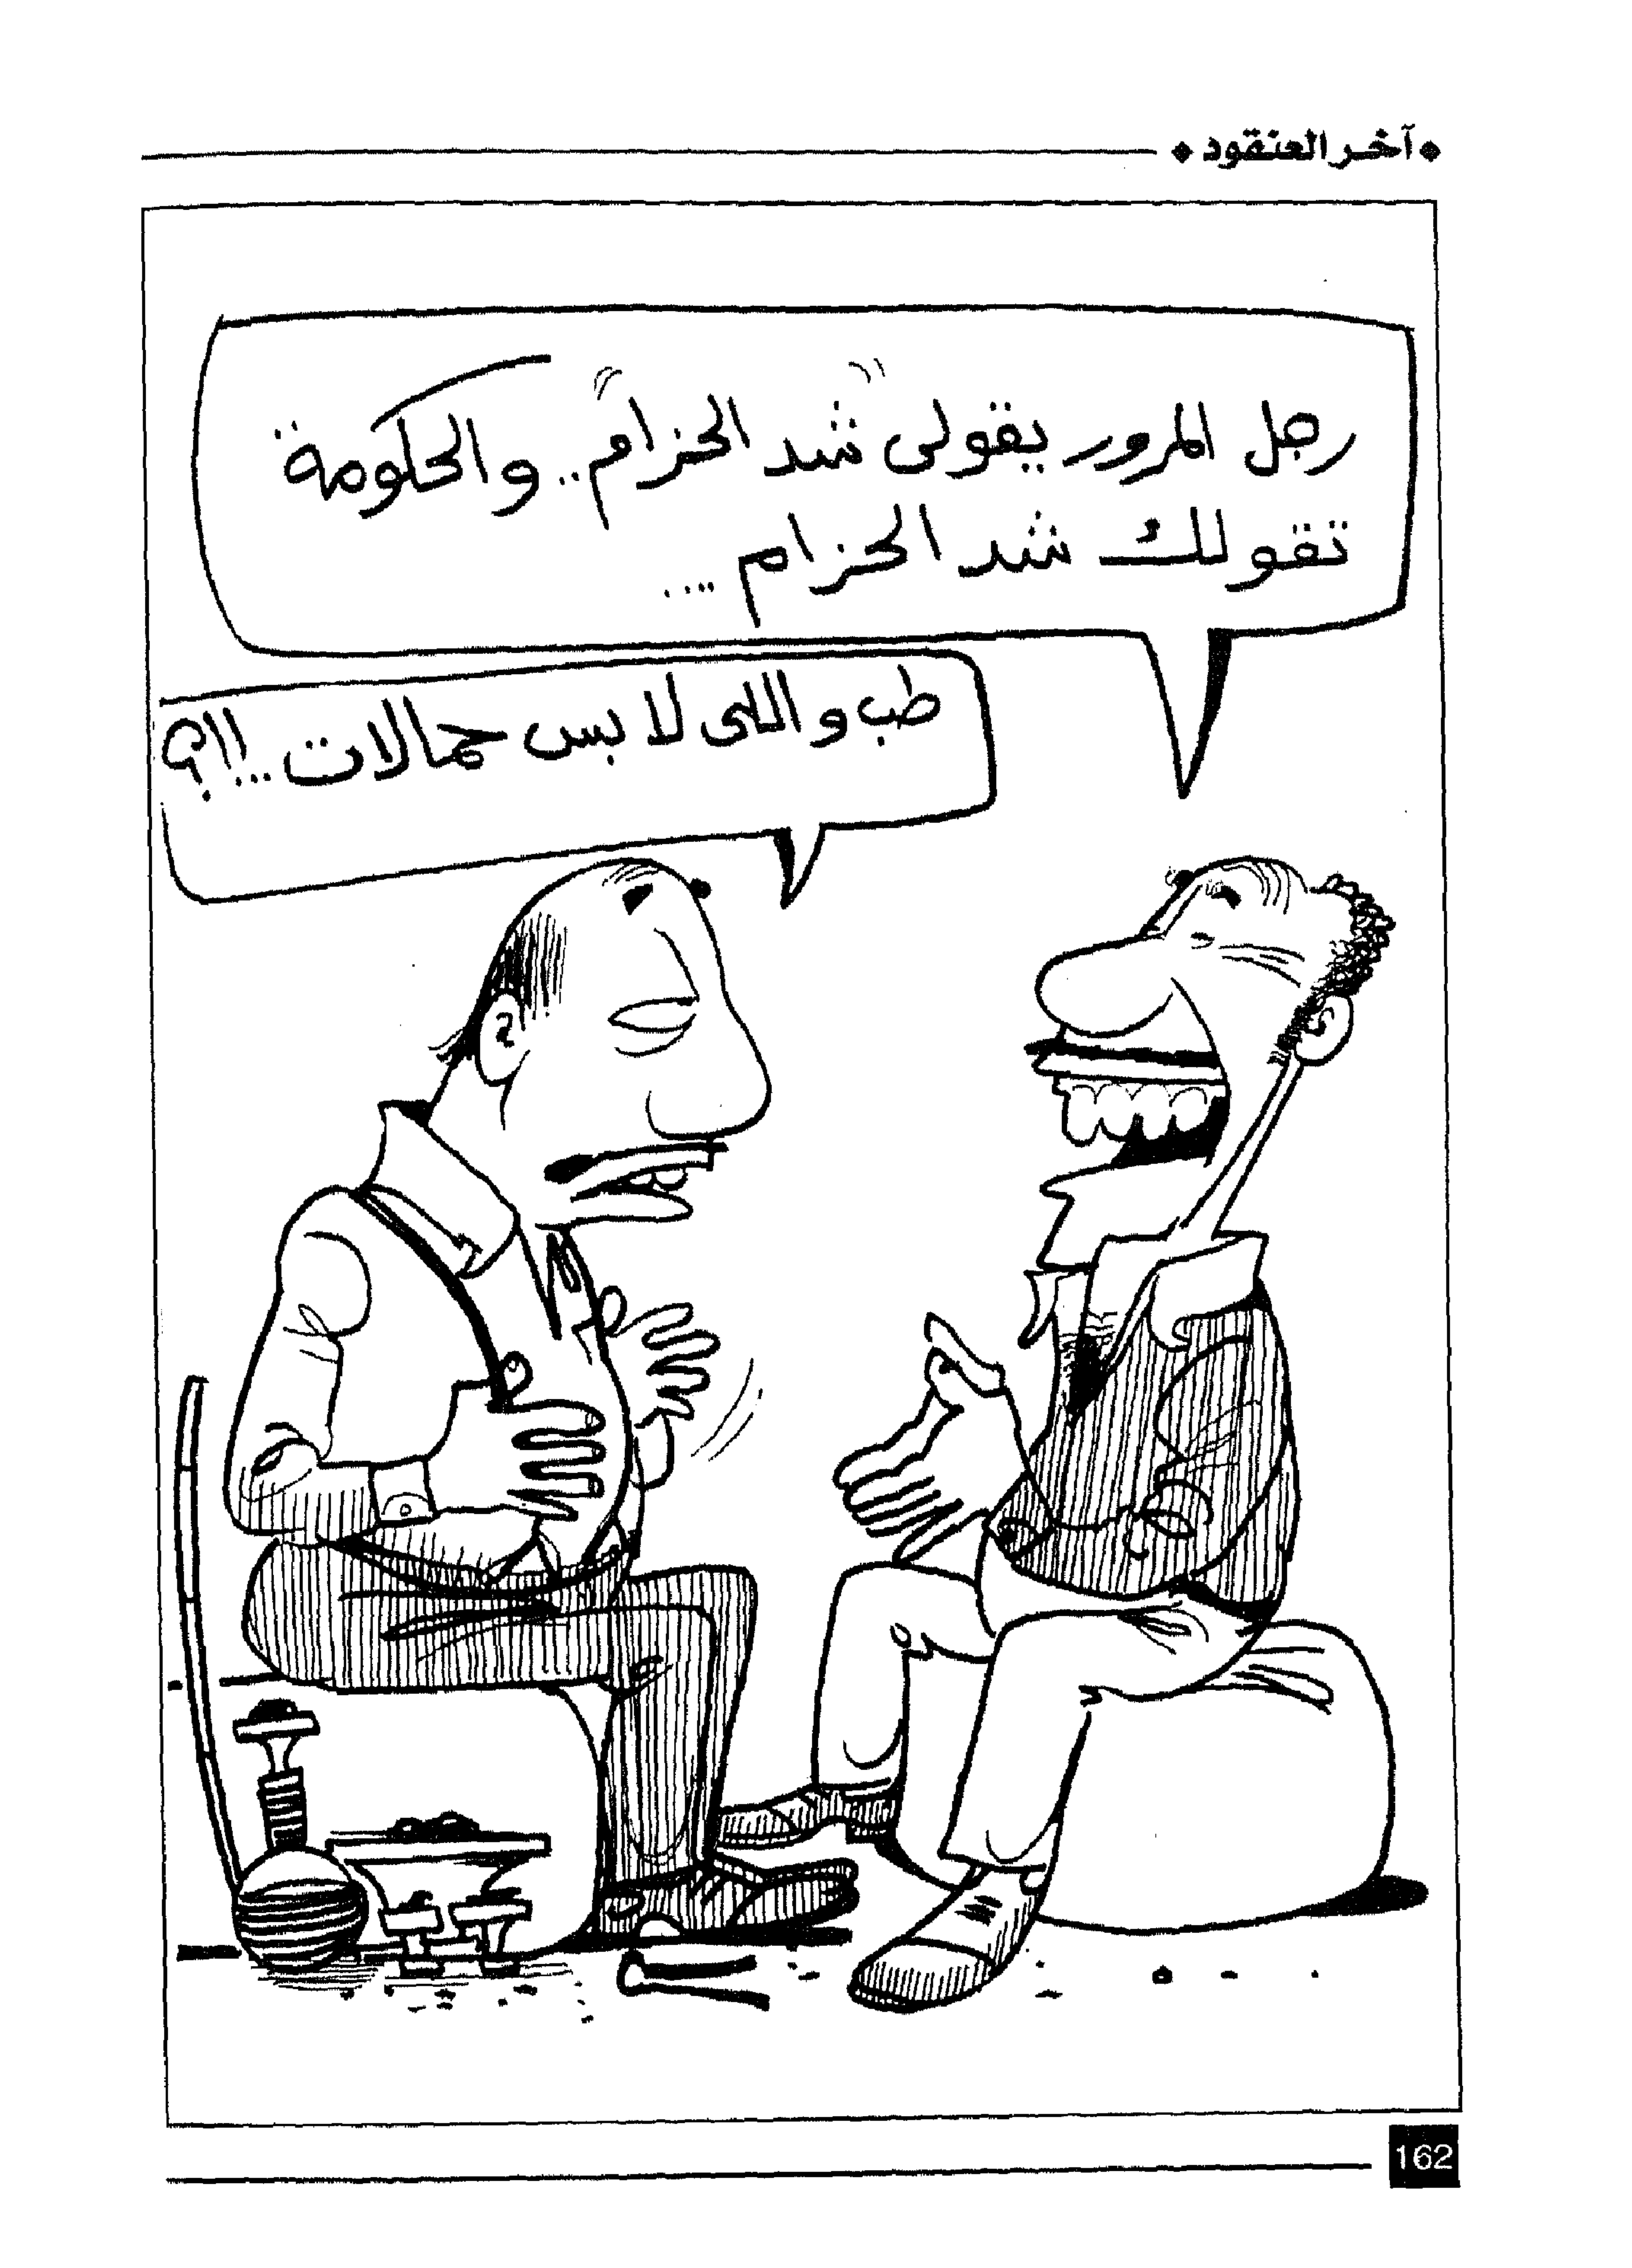 آخر العنقود
رجل المرور يقولى "شد الحزام".. والحكومة
تقولك شد الحزام ....
طب واللى لابس حمالات...!!؟
162